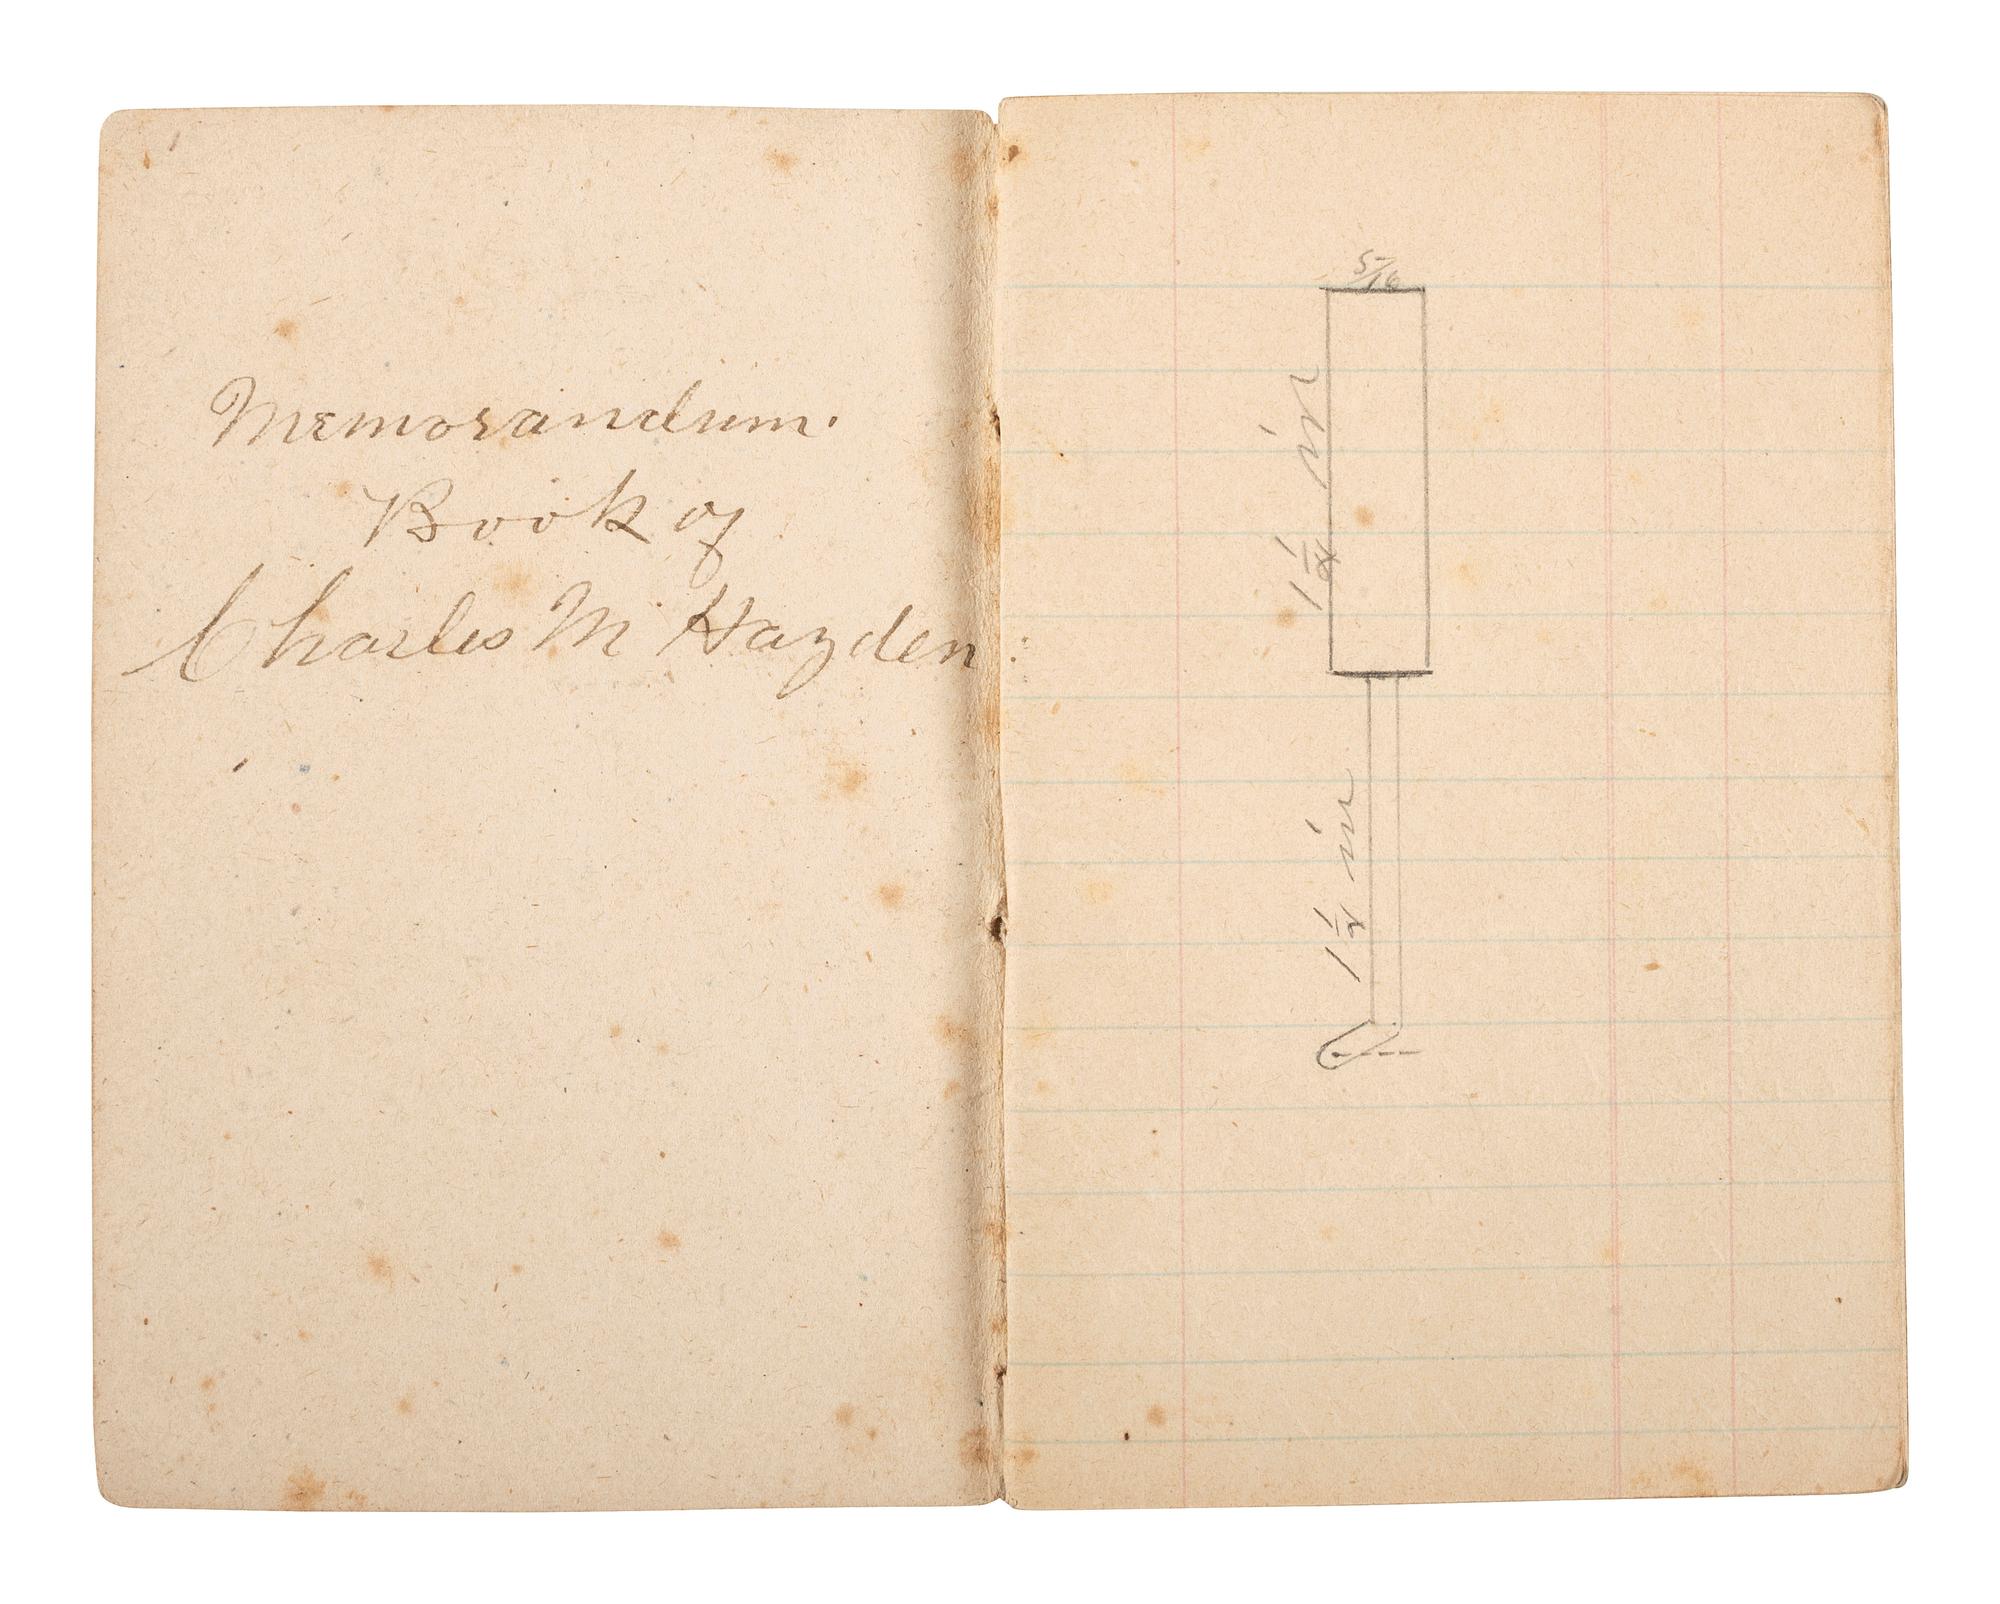 Memorandum.
Book of
Charles M Hayden
5/16
1 1/4 in
1 1/2 in